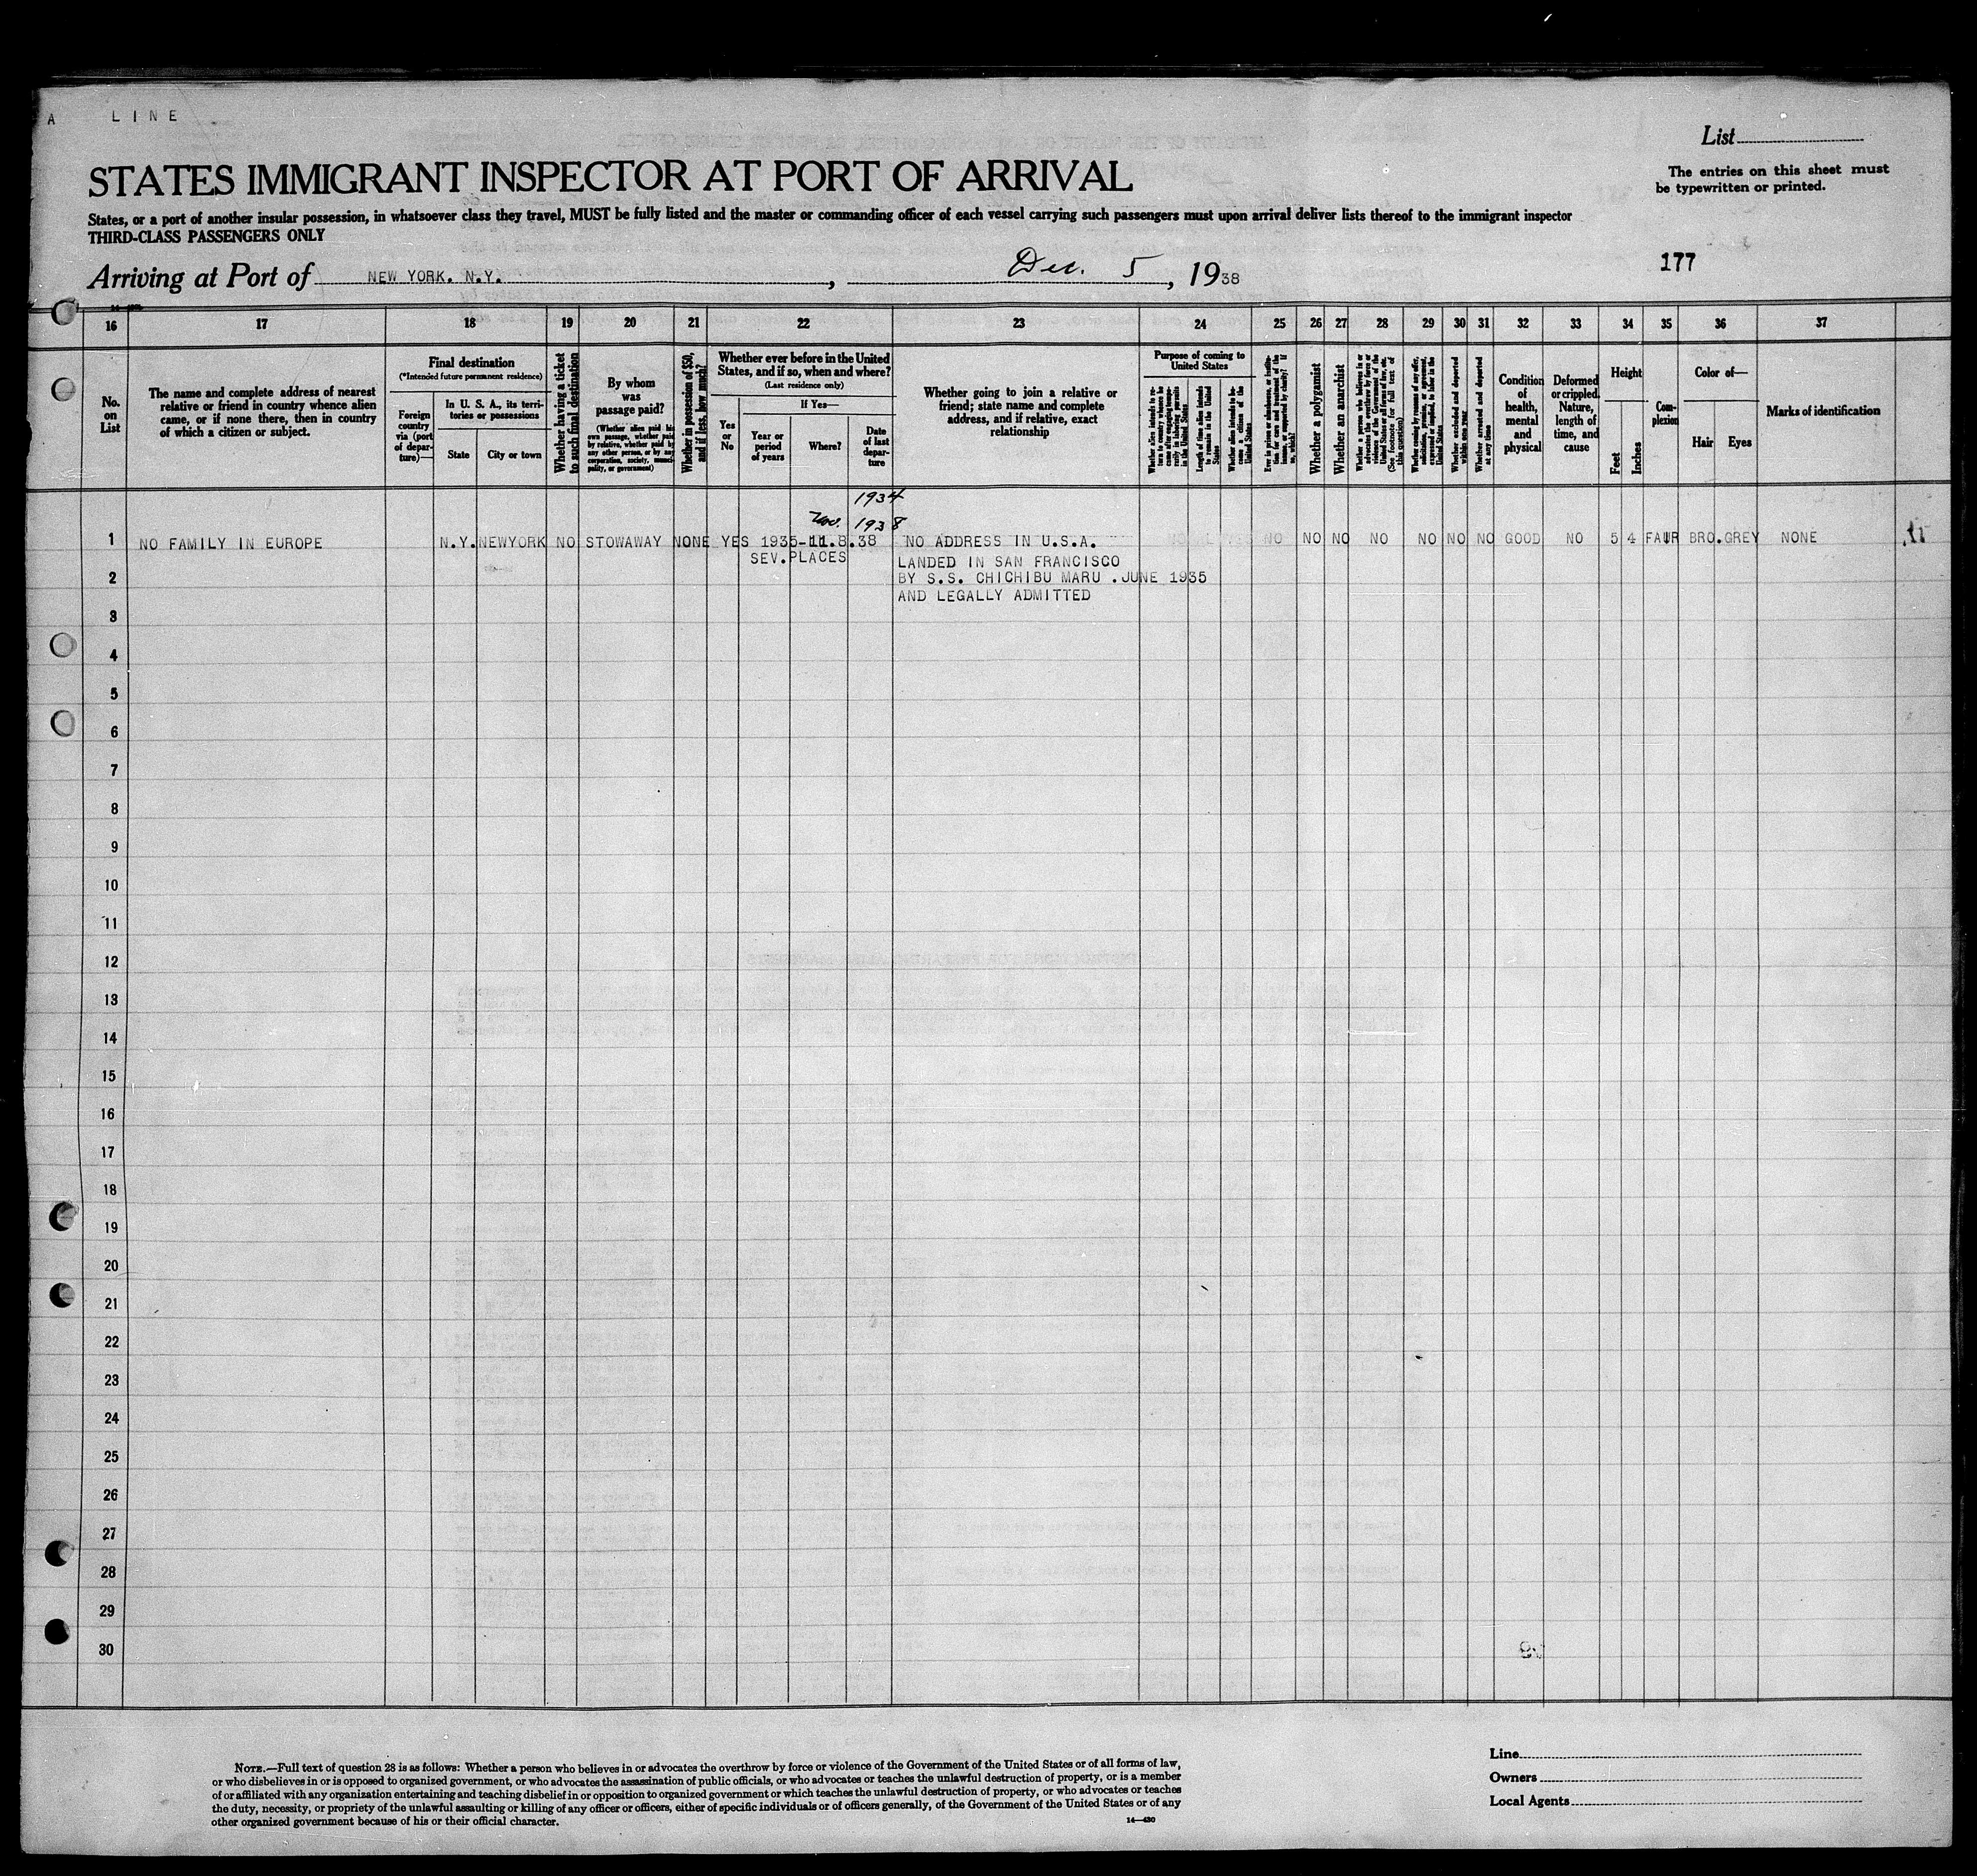 A LINE
List
STATES IMMIGRANT INSPECTOR AT PORT OF ARRIVAL
The entries on this sheet must
be typewritten or printed.
States, or a port of another insular possession, in whatsoever class they travel, MUST be fully listed and the master or commanding officer of each vessel carrying such passengers must upon arrival deliver lists thereof to the immigrant inspector
THIRD-CLASS PASSENGERS ONLY
177
Arriving at Port of NEW YORK. N.Y. , Dec. 5 , 1938
16 17 18 19 20 21 22 23 24 25 26 27 28 29 30 31 32 33 34 35 36 37
No.
on
List
The name and complete address of nearest
relative or friend in country whence alien
came, or if none there, then in country
of which a citizen or subject.
Final destination
(*Intended future permanent residence)
Foreign
country
via (port
of depar-
ture)—
In U. S. A., its terri-
tories or possessions
State
City or town
Whether having a ticket
to such final destination
By whom
was
passage paid?
(Whether alien paid his
own passage, whether paid
by relative, whether paid by
any other person, or by any
corporation, society, munici-
pality, or government)
Whether in possession of $50,
and if less, how much?
Whether ever before in the United
States, and if so, when and where?
(Last residence only)
Yes
or
No
If Yes—
Year or
period
of years
Where?
Date
of last
depar-
ture
Whether going to join a relative or
friend; state name and complete
address, and if relative, exact
relationship
Purpose of coming to
United States
Length of time alien intends
to remain in the United
States
Whether alien intends to be-
come a citizen of the
United States
Whether a polygamist
Whether an anarchist
Whether excluded and deported
within one year
Whether arrested and deported
at any time
Condition
of
health,
mental
and
physical
Deformed
or crippled.
Nature,
length of
time, and
cause
Height
Feet
Inches
Com-
plexion
Color of—
Hair
Eyes
Marks of identification
1934
Nov. 1938
1 NO FAMILY IN EUROPE N.Y. NEWYORK NO STOWAWAY NONE YES 1935-11.8.38 NO ADDRESS IN U.S.A. NO NO NO NO NO NO NO NO GOOD NO 5 4 FAIR BRO. GREY NONE
SEV.PLACES LANDED IN SAN FRANCISCO
2 BY S.S. CHICHIBU MARU .JUNE 1935
AND LEGALLY ADMITTED
3
4
5
6
7
8
9
10
11
12
13
14
15
16
17
18
19
20
21
22
23
24
25
26
27
28
29
30
NOTE.—Full text of question 28 is as follows: Whether a person who believes in or advocates the overthrow by force or violence of the Government of the United States or of all forms of law,
or who disbelieves in or is opposed to organized government, or who advocates the assassination of public officials, or who advocates or teaches the unlawful destruction of property, or is a member
of or affiliated with any organization entertaining and teaching disbelief in or opposition to organized government or which teaches the unlawful destruction of property, or who advocates or teaches
the duty, necessity, or propriety of the unlawful assaulting or killing of any officer or officers, either of specific individuals or of officers generally, of the Government of the United States or of any
other organized government because of his or their official character.
14—430
Line
Owners
Local Agents